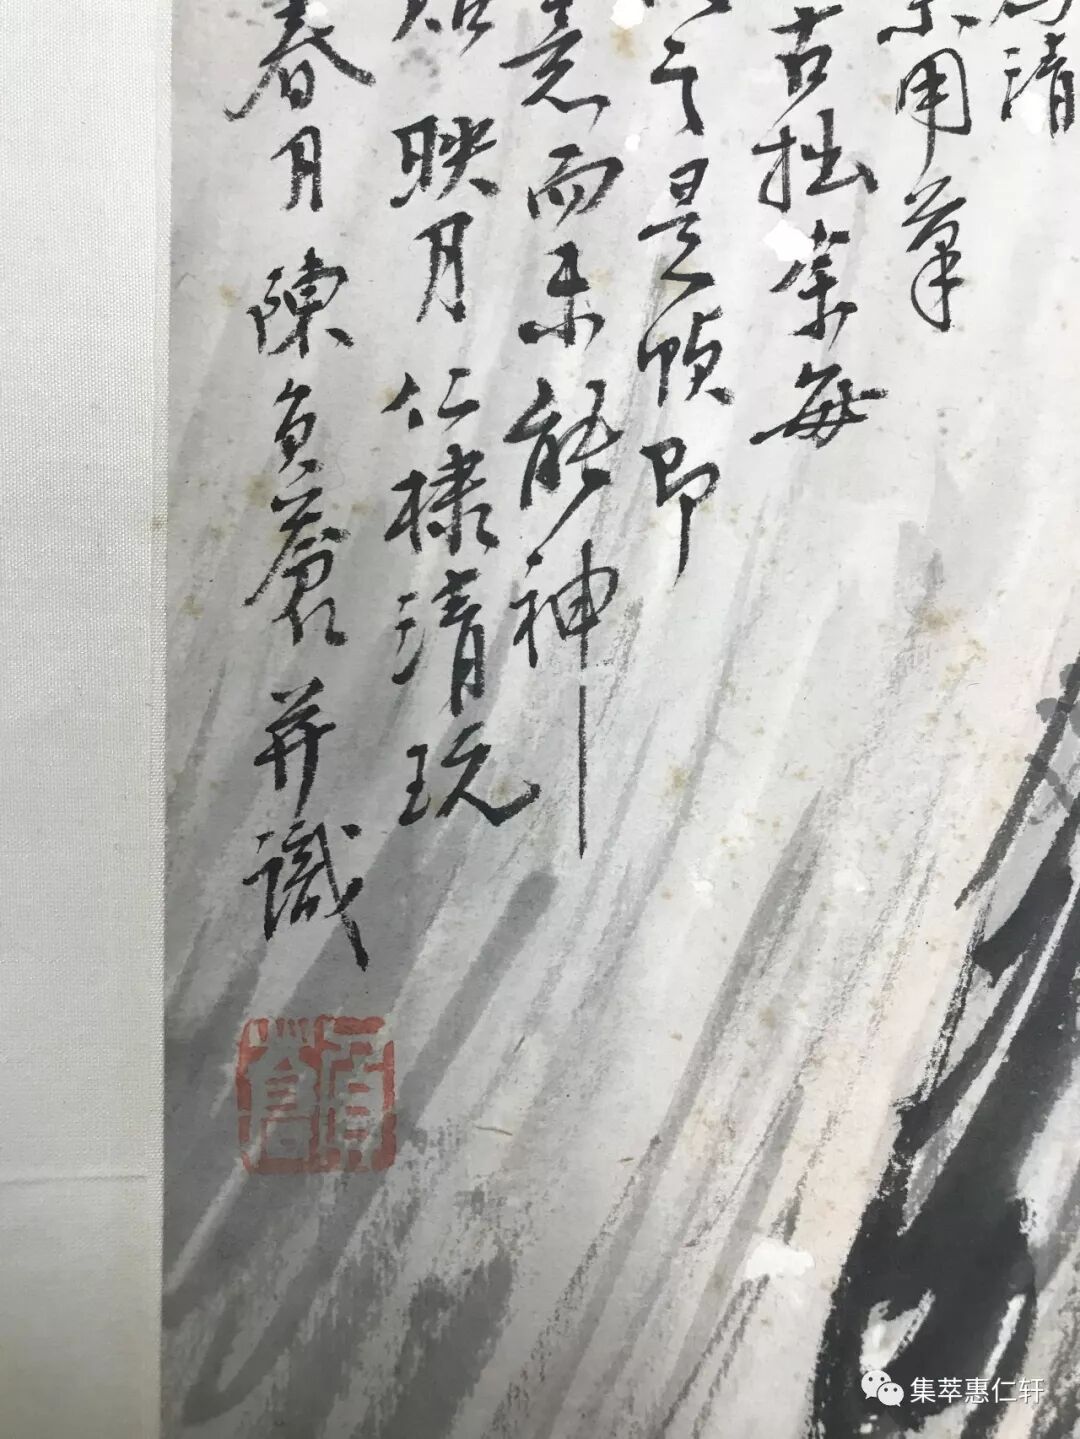 清
用筆
古拙余每
之是幀即
意而未能神
映月仁棣清玩
春月陳負蒼并識
負蒼
集萃惠仁轩